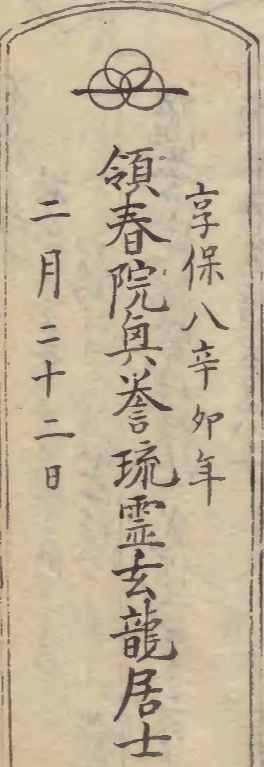 享保八辛卯年
領春院奥誉琉霊玄龍居士
二月二十二日